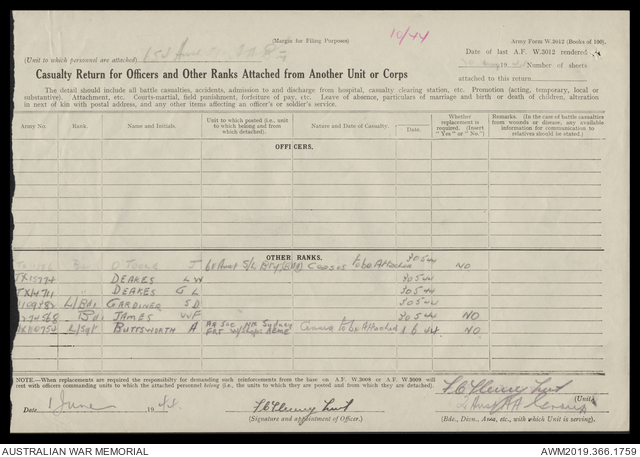 (Margin for Filing Purposes)
10/44
Army Form W.3012 (Books of 100).
Date of last A.F. W.3012 rendered
(Unit to which personnel are attached)
19 Number of sheets
attached to this return
Casualty Return for Officers and Other Ranks Attached from Another Unit or Corps
The detail should include all battle casualties, accidents, admission to and discharge from hospital, casualty clearing station, etc. Promotion (acting, temporary, local or
substantive). Attachment, etc. Courts-martial, field punishment, forfeiture of pay, etc. Leave of absence, particulars of marriage and birth or death of children, alteration
in next of kin with postal address, and any other items affecting an officer's or soldier's service.
Army No. Rank. Name and Initials. Unit to which posted (i.e., unit to which belong and from which detached). Nature and Date of Casualty. Date. Whether replacement is required. (Insert "Yes" or "No.") Remarks. (In the case of battle casualties from wounds or disease, any available information for communication to relatives should be stated.)
OFFICERS.
OTHER RANKS.
O'Toole J S/L Bty Ceases to be Attached 30 5 44 NO
DEAKES L W 30 5 44
DEAKES G L 30 5 44
L/Bdr GARDINER S D 30 5 44
Bdr JAMES W F 30 5 44 NO
L/Sgt BUTTSWORTH A Sydney to be Attached 1 6 44 NO
NOTE.—When replacements are required the responsibility for demanding such reinforcements from the base on A.F. W.3008 or A.F. W.3009 will
rest with officers commanding units to which the attached personnel belong (i.e., the units to which they are posted and from which they are detached).
Date 1 June 1944
(Signature and appointment of Officer.)
(Unit)
(Bde., Divn., Area, etc., with which Unit is serving).
AUSTRALIAN WAR MEMORIAL
AWM2019.366.1759